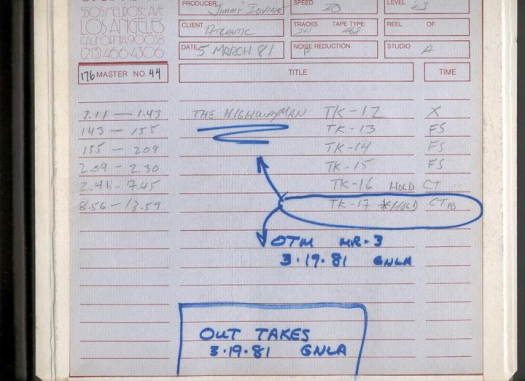 PRODUCER Jimmy Iovine SPEED 30 LEVEL +3
5505 MELROSE AVE
LOS ANGELES
CALIFORNIA 90038
(213) 466-4306
CLIENT TRACKS 24 TAPE TYPE REEL OF
DATE 5 MARCH 81 NOISE REDUCTION STUDIO A
176 MASTER NO. 44 TITLE TIME
1.11 — 1.43 THE HIGHWAYMAN TK-12 X
143 — 155 TK-13 FS
155 — 209 TK-14 FS
2.09 — 2.30 TK-15 FS
2.41 - 7.45 TK-16 HOLD CT
8.56 - 13.59 TK-17 *HOLD CT
OTM MR-3
3.19.81 GNLA
OUT TAKES
3.19.81 GNLA